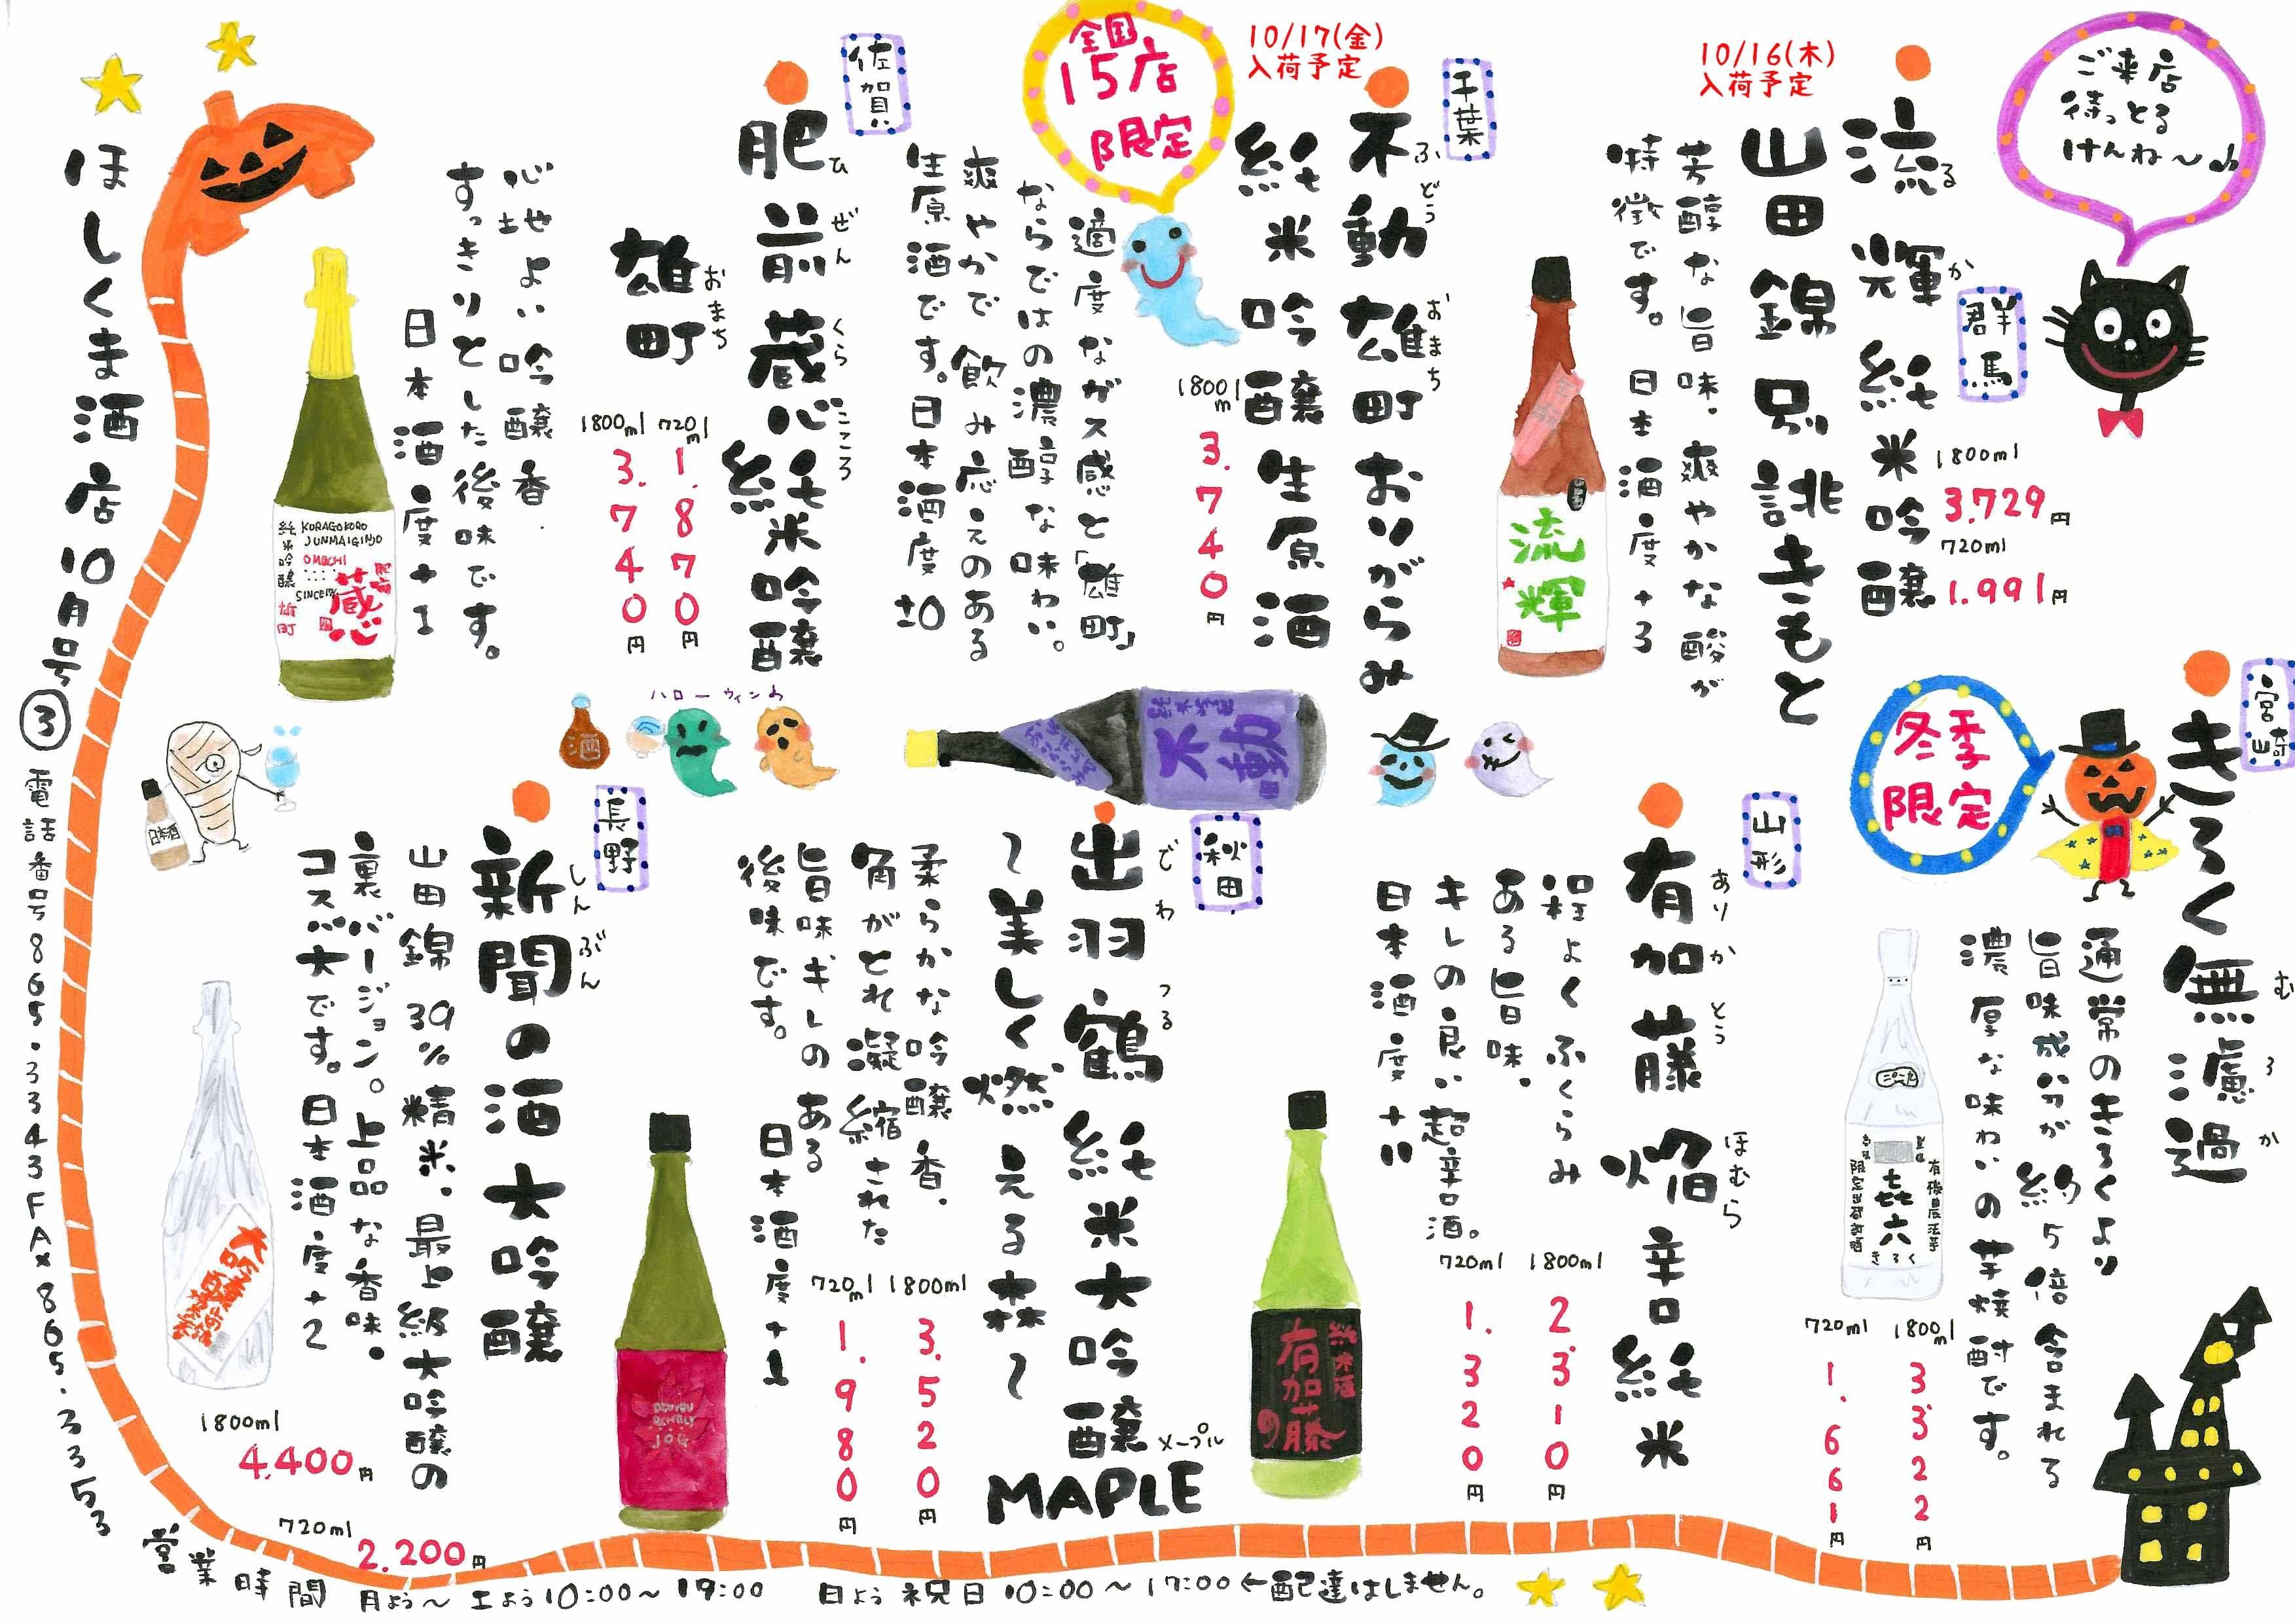 ご来店
待っとる
けんねー♪
10/16(木)
入荷予定
群馬
流輝 純米吟醸
るか
山田錦 別誂きもと
1800ml
3.729円
720ml
1.991円
芳醇な旨味、爽やかな酸が
特徴です。日本酒度+3
流輝
10/17(金)
入荷予定
千葉
不動 雄町 おりがらみ
ふどう おまち
純米吟醸生原酒
1800ml
3.740円
全国
15店
限定
適度なガス感と「雄町」
ならではの濃醇な味わい。
爽やかで飲み応えのある
生原酒です。日本酒度±0
純米吟醸
不動
佐賀
肥前蔵心 純米吟醸
ひぜんくらこころ
雄町
おまち
720ml
1.870円
1800ml
3.740円
心地よい吟醸香、
すっきりとした後味です。
日本酒度+1
KURAGOKORO
JUNMAIGINJO
OMACHI
純米吟醸
雄町
肥前
蔵心
ハローウィン♪
酒
日本酒
宮崎
きろく無濾過
むろか
冬季
限定
通常のきろくより
旨味成分が約5倍含まれる
濃厚な味わいの芋焼酎です。
1800ml
3.322円
720ml
1.661円
有機農法芋
㐂六
きろく
山形
有加藤 焔 辛口純米
ありかとう ほむら
程よくふくらみ
ある旨味、
キレの良い超辛口酒。
日本酒度+11
1800ml
2.310円
720ml
1.320円
純米酒
有加藤
秋田
出羽鶴 純米大吟醸
でわつる
〜美しく燃える森〜
MAPLE
メープル
柔らかな吟醸香、
角がとれ凝縮された
旨味キレのある
後味です。
日本酒度+1
1800ml
3.520円
720ml
1.980円
長野
新聞の酒大吟醸
しんぶん
山田錦39%精米、最上級大吟醸の
裏バージョン。上品な香味、
コスパ大です。日本酒度+2
1800ml
4.400円
720ml
2.200円
大吟醸
ほしくま酒店10月号③ 電話番号865.3343 FAX865.3353
営業時間 月よう〜土よう10:00〜19:00 日よう祝日10:00〜17:00←配達はしません。